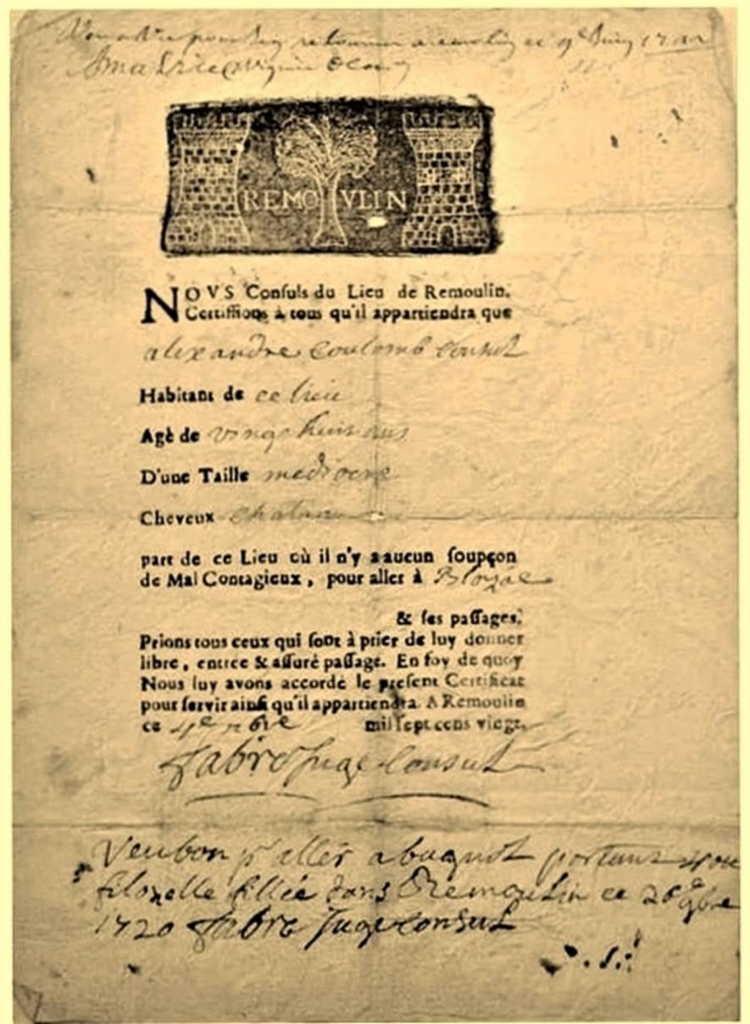 pour
retourner
REMOVLIN
NOVS Consuls du Lieu de Remoulin,
Certiffions à tous qu'il appartiendra que
alexandre coulomb consul
Habitant de ce lieu
Agè de vingt huit ans
D'une Taille mediocre
Cheveux chatain
part de ce Lieu où il n'y a aucun soupçon
de Mal Contagieux, pour aller à Blozac
& ses passages,
Prions tous ceux qui sont à prier de luy donner
libre, entrée & assuré passage. En foy de quoy
Nous luy avons accordé le present Certificat
pour servir ainsi qu'il appartiendra. A Remoulin
ce 4e 9bre mil sept cens vingt,
fabre juge consul
Veu bon pr aller a baquol portant
filozelle fillée dans Remoulin ce 26e 9bre
1720 fabre juge consul